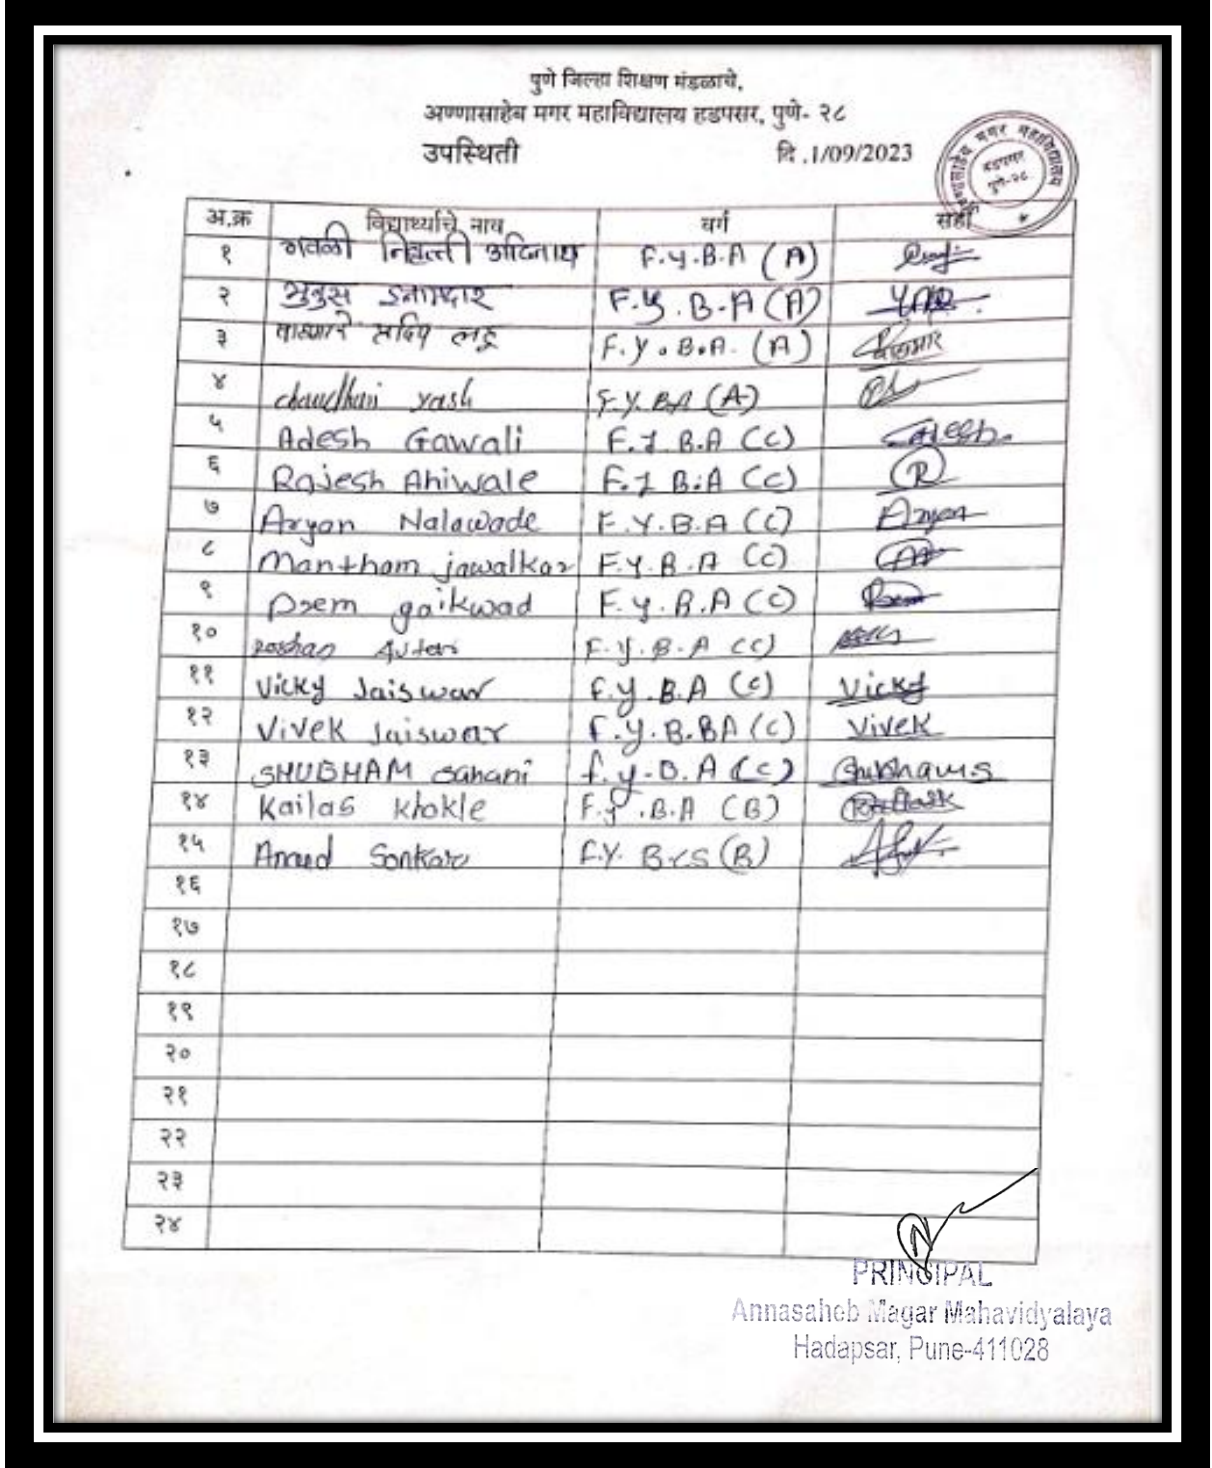 पुणे जिल्हा शिक्षण मंडळाचे,
अण्णासाहेब मगर महाविद्यालय हडपसर, पुणे- २८
उपस्थिती दि .1/09/2023
मगर महाविद्यालय
हडपसर
पुणे-२८
अ.क्र विद्यार्थ्याचे नाव वर्ग सही
१ गवळी निवृत्ती आदिनाथ F.Y.B.A (A)
२ युनुस इनामदार F.Y.B.A (A)
३ F.Y.B.A. (A)
४ chaudhari yash F.Y.BA (A)
५ Adesh Gawali F.Y.B.A (C) Adesh
६ Rajesh Ahiwale F.Y B.A (C) R
७ Aryan Nalawade F.Y.B.A (C) Aryan
८ Mantham jawalkar F.Y.B.A (C)
९ Prem gaikwad F.Y.B.A (C) Prem
१० roshan F.Y.B.A (C)
११ Vicky Jaiswar F.Y.B.A (C) Vicky
१२ Vivek Jaiswar F.Y.B.BA (C) Vivek
१३ SHUBHAM Sahani F.y.B.A (C) Shubham S
१४ Kailas khokle F.Y.B.A (B)
१५ Sonkar F.Y. BCS (B)
१६
१७
१८
१९
२०
२१
२२
२३
२४
PRINCIPAL
Annasaheb Magar Mahavidyalaya
Hadapsar, Pune-411028